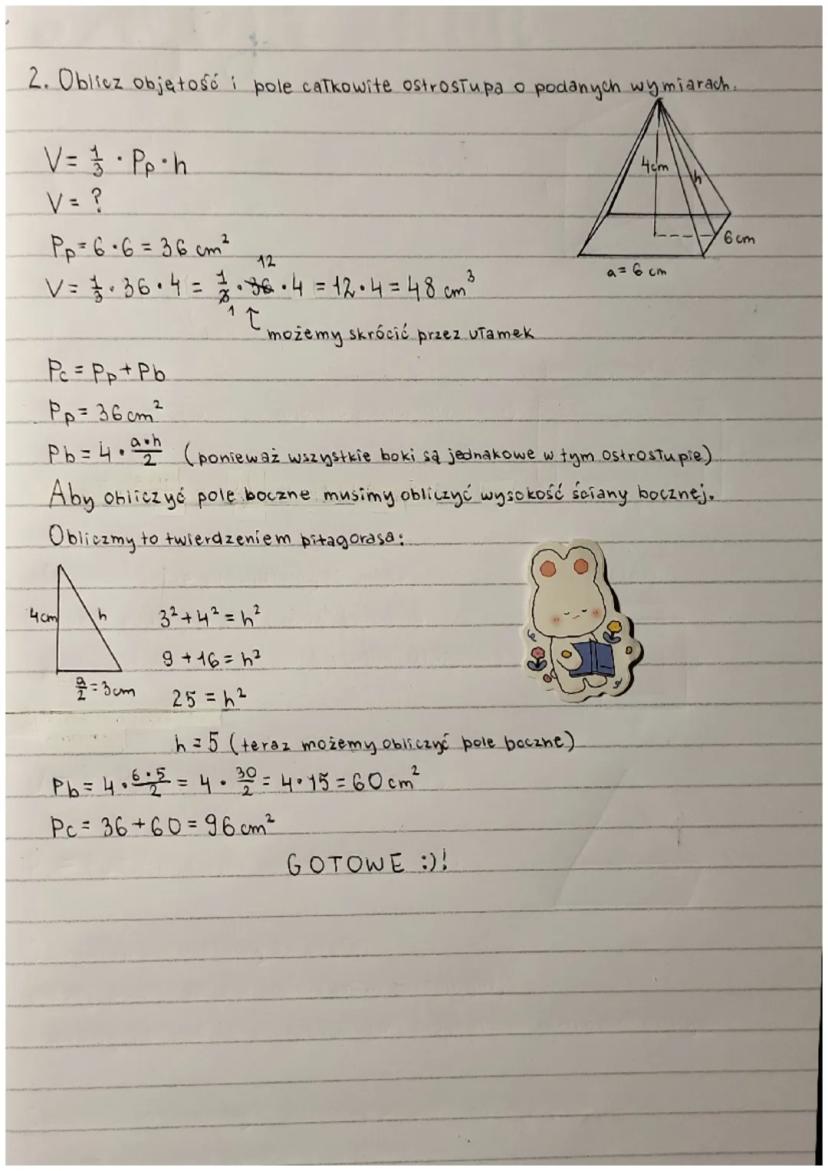 2. Oblicz objętość i pole całkowite ostrosłupa o podanych wymiarach.
V = 1/3 · Pp · h
V = ?
Pp = 6 · 6 = 36 cm²
4cm
h
6 cm
a = 6 cm
12
V = 1/3 · 36 · 4 = 1/3 · 36 · 4 = 12 · 4 = 48 cm³
1
możemy skrócić przez ułamek
Pc = Pp + Pb
Pp = 36 cm²
Pb = 4 · a·h/2 (ponieważ wszystkie boki są jednakowe w tym ostrosłupie)
Aby obliczyć pole boczne musimy obliczyć wysokość ściany bocznej.
Obliczmy to twierdzeniem pitagorasa:
4cm
h
a/2 = 3cm
3² + 4² = h²
9 + 16 = h²
25 = h²
h = 5 (teraz możemy obliczyć pole boczne)
Pb = 4 · 6·5/2 = 4 · 30/2 = 4 · 15 = 60 cm²
Pc = 36 + 60 = 96 cm²
GOTOWE :)!